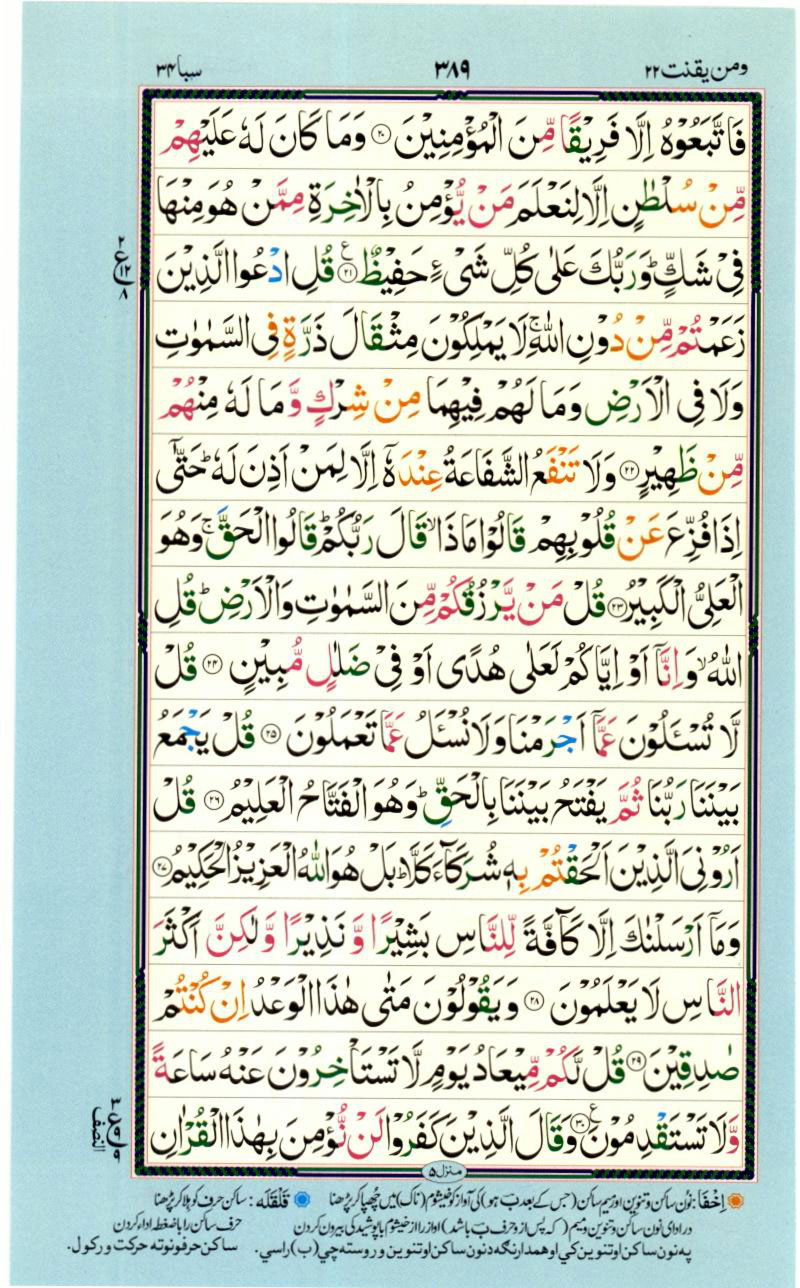 ومن يقنت ٢٢ ٣٨٩ سبا ٣٤
فَاتَّبَعُوْهُ اِلَّا فَرِيْقًا مِّنَ الْمُؤْمِنِيْنَ ﴿۲۰﴾ وَمَا كَانَ لَهٗ عَلَيْهِمْ
مِّنْ سُلْطٰنٍ اِلَّا لِنَعْلَمَ مَنْ يُّؤْمِنُ بِالْاٰخِرَةِ مِمَّنْ هُوَ مِنْهَا
فِيْ شَكٍّ ؕ وَرَبُّكَ عَلٰى كُلِّ شَىْءٍ حَفِيْظٌ ﴿۲۱﴾ ع قُلِ ادْعُوا الَّذِيْنَ
زَعَمْتُمْ مِّنْ دُوْنِ اللّٰهِ ۚ لَا يَمْلِكُوْنَ مِثْقَالَ ذَرَّةٍ فِي السَّمٰوٰتِ
وَلَا فِي الْاَرْضِ وَمَا لَهُمْ فِيْهِمَا مِنْ شِرْكٍ وَّمَا لَهٗ مِنْهُمْ
مِّنْ ظَهِيْرٍ ﴿۲۲﴾ وَلَا تَنْفَعُ الشَّفَاعَةُ عِنْدَهٗۤ اِلَّا لِمَنْ اَذِنَ لَهٗ ؕ حَتّٰۤى
اِذَا فُزِّعَ عَنْ قُلُوْبِهِمْ قَالُوْا مَاذَا ۙ قَالَ رَبُّكُمْ ؕ قَالُوا الْحَقَّ ۚ وَهُوَ
الْعَلِيُّ الْكَبِيْرُ ﴿۲۳﴾ قُلْ مَنْ يَّرْزُقُكُمْ مِّنَ السَّمٰوٰتِ وَالْاَرْضِ ؕ قُلِ
اللّٰهُ ۙ وَاِنَّاۤ اَوْ اِيَّاكُمْ لَعَلٰى هُدًى اَوْ فِيْ ضَلٰلٍ مُّبِيْنٍ ﴿۲۴﴾ قُلْ
لَّا تُسْـَٔلُوْنَ عَمَّاۤ اَجْرَمْنَا وَلَا نُسْـَٔلُ عَمَّا تَعْمَلُوْنَ ﴿۲۵﴾ قُلْ يَجْمَعُ
بَيْنَنَا رَبُّنَا ثُمَّ يَفْتَحُ بَيْنَنَا بِالْحَقِّ ؕ وَهُوَ الْفَتَّاحُ الْعَلِيْمُ ﴿۲۶﴾ قُلْ
اَرُوْنِيَ الَّذِيْنَ اَلْحَقْتُمْ بِهٖ شُرَكَآءَ كَلَّا ؕ بَلْ هُوَ اللّٰهُ الْعَزِيْزُ الْحَكِيْمُ ﴿۲۷﴾
وَمَاۤ اَرْسَلْنٰكَ اِلَّا كَآفَّةً لِّلنَّاسِ بَشِيْرًا وَّنَذِيْرًا وَّلٰكِنَّ اَكْثَرَ
النَّاسِ لَا يَعْلَمُوْنَ ﴿۲۸﴾ وَيَقُوْلُوْنَ مَتٰى هٰذَا الْوَعْدُ اِنْ كُنْتُمْ
صٰدِقِيْنَ ﴿۲۹﴾ قُلْ لَّكُمْ مِّيْعَادُ يَوْمٍ لَّا تَسْتَاْخِرُوْنَ عَنْهُ سَاعَةً
وَّلَا تَسْتَقْدِمُوْنَ ﴿۳۰﴾ ع وَقَالَ الَّذِيْنَ كَفَرُوْا لَنْ نُّؤْمِنَ بِهٰذَا الْقُرْاٰنِ
النصف
منزل ۵
اِخْفَا: نون ساکن و تنوین اور میم ساکن (جس کے بعد ب ہو) کی آواز کو خیشوم (ناک) میں چھپا کر پڑھنا قَلْقَلَه: ساکن حرف کو ہلا کر پڑھنا
در ادای نون ساکن و تنوین و میم (که پس از و حرف ب باشد) آواز را از خیشوم با پوشیدگی بیرون کردن حرف ساکن را با ضغطه ادا کردن
په نون ساکن او تنوین کې او همدارنګه د نون ساکن او تنوین وروسته چې (ب) راسي. ساکن حرفونو ته حرکت ورکول.